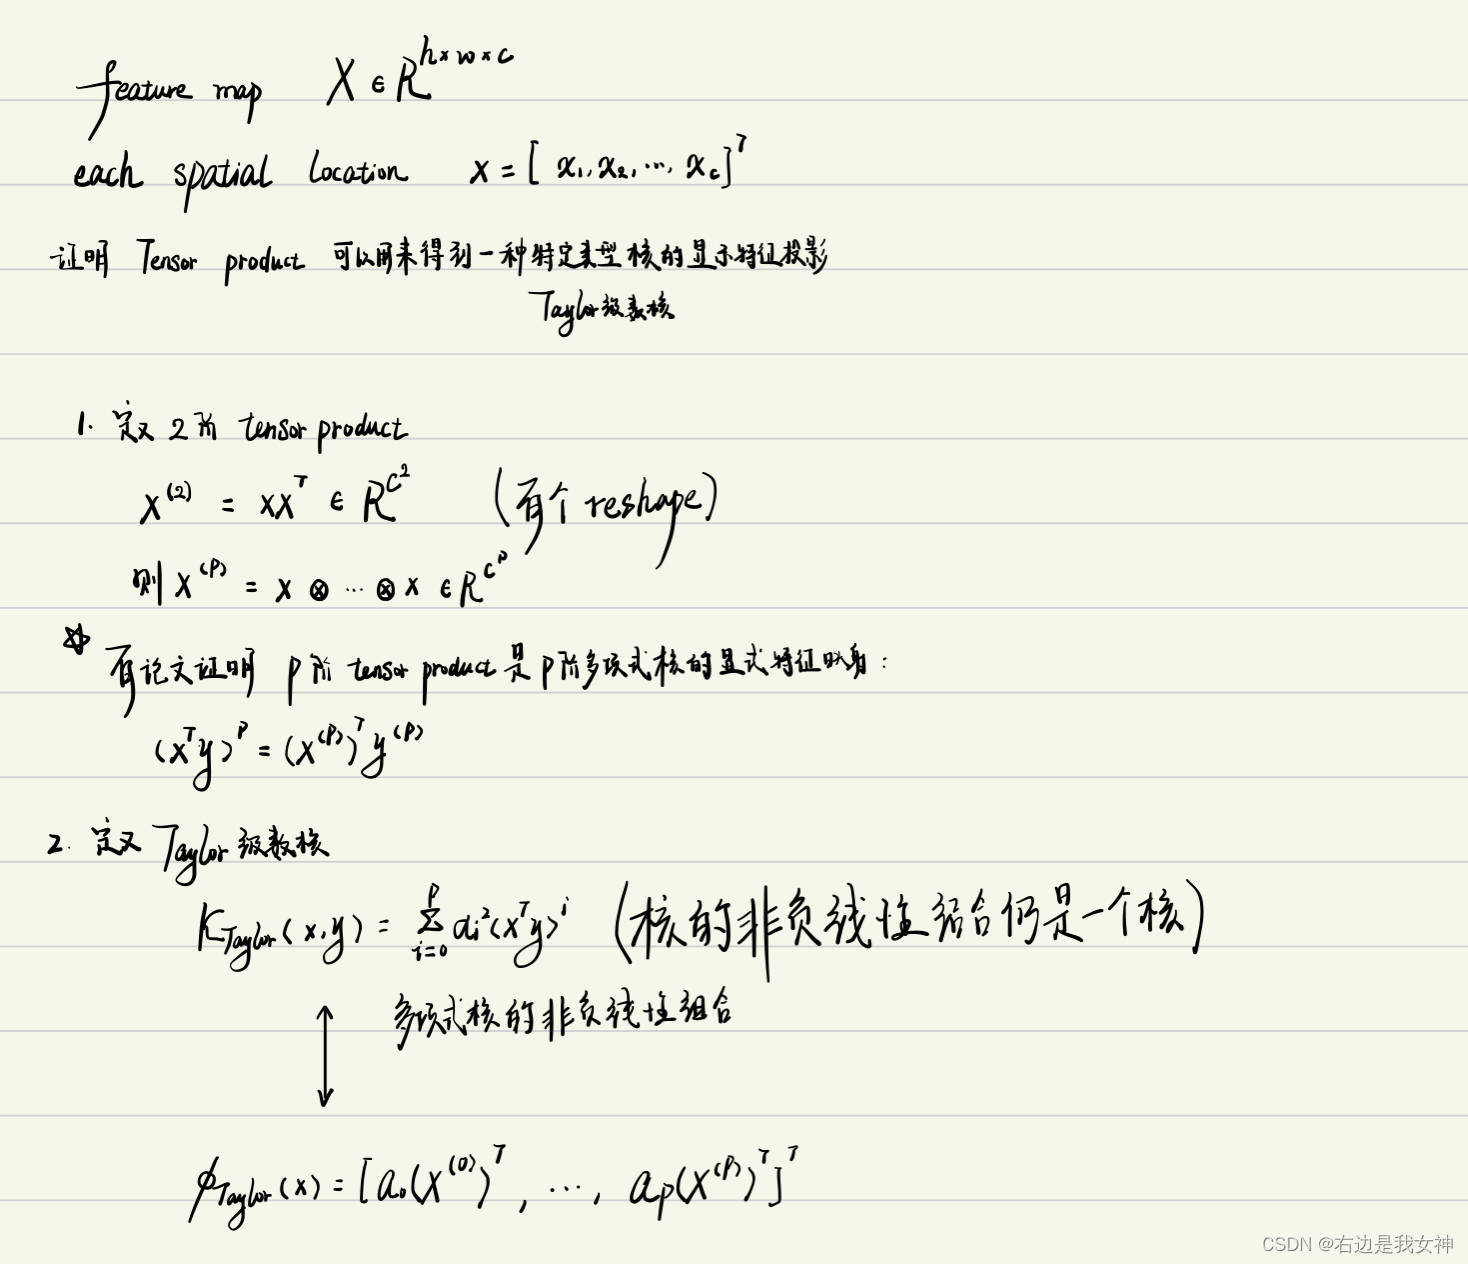 feature map X ∈ R^{h×w×c}
each spatial location x = [x₁, x₂, ..., x_c]^T
证明 Tensor product 可以用来得到一种特定类型核的显示特征投影
Taylor级数核
1. 定义 2阶 tensor product
X^{(2)} = XX^T ∈ R^{C^2} (有个reshape)
则 X^{(P)} = X ⊗ ... ⊗ X ∈ R^{C^P}
☆ 有论文证明 P阶 tensor product 是 P阶多项式核的显式特征映射:
(X^T y)^P = (X^{(P)})^T y^{(P)}
2. 定义 Taylor级数核
K_{Taylor}(x,y) = \sum_{i=0}^{P} a_i^2 (X^T y)^i (核的非负线性组合仍是一个核)
多项式核的非负线性组合
↕
ϕ_{Taylor}(x) = [a₀(X^{(0)})^T, ..., a_P(X^{(P)})^T]^T
CSDN @右边是我女神